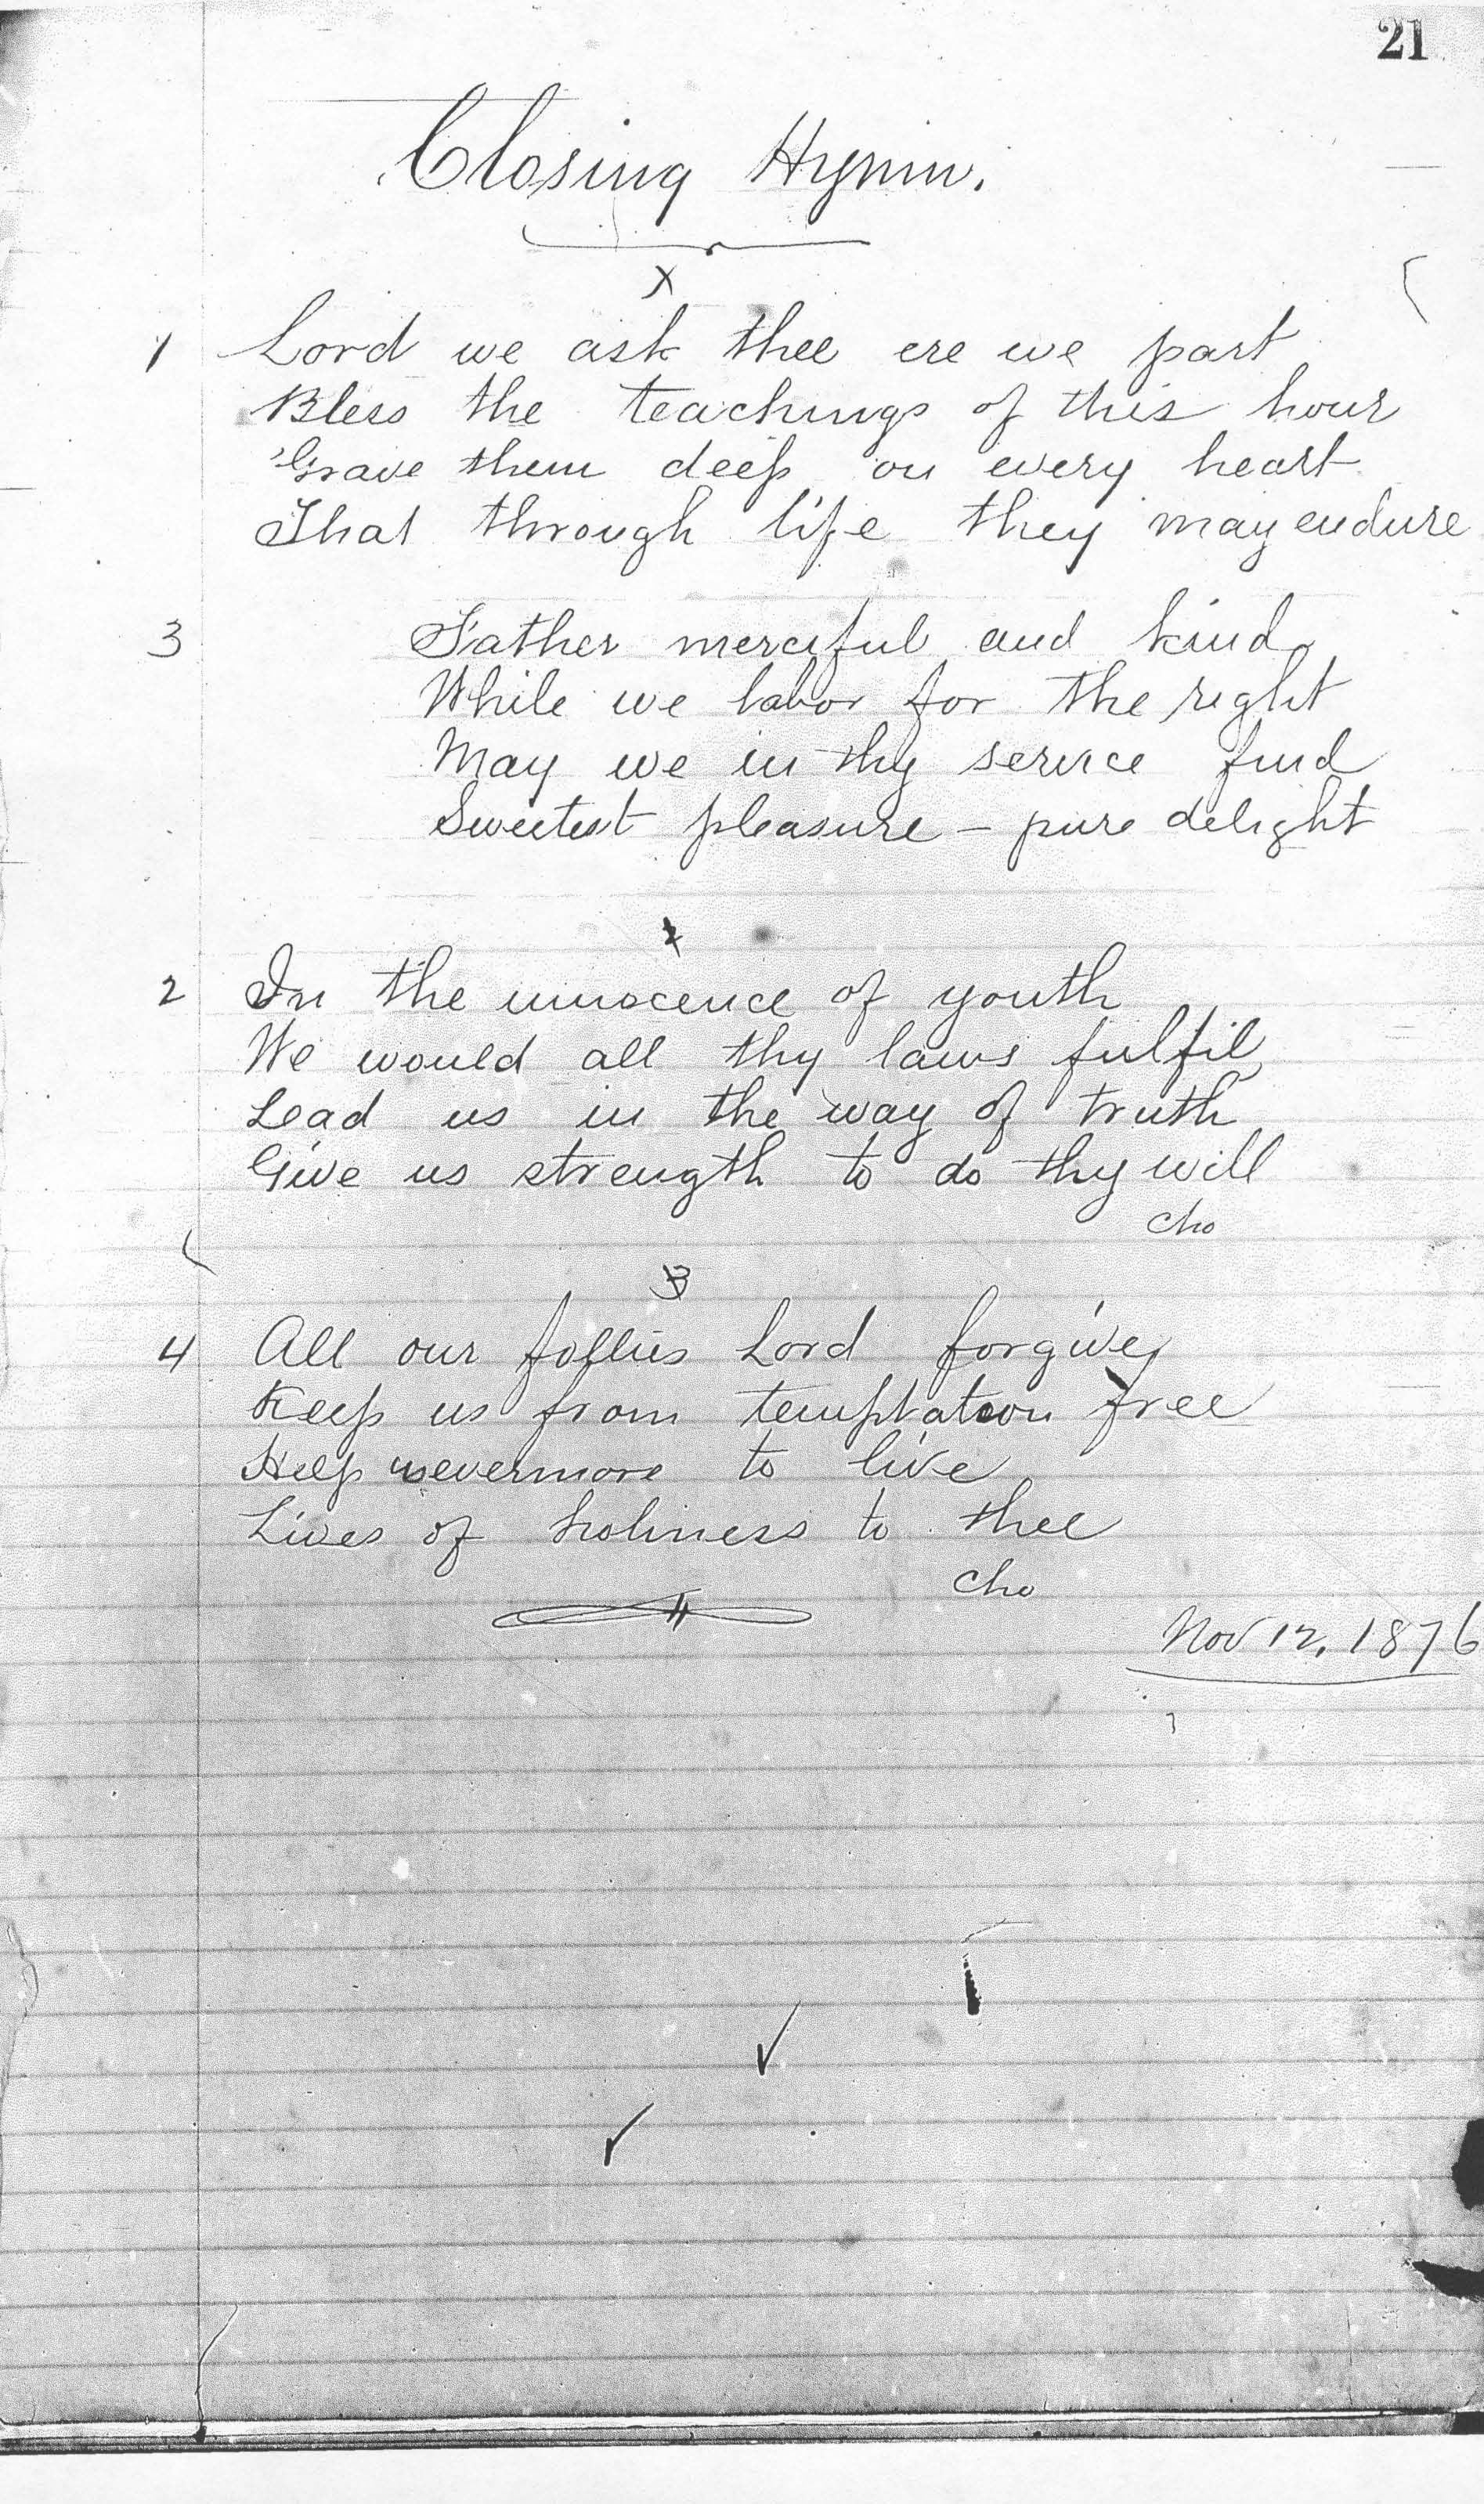 21
Closing Hymn.
X
1 Lord we ask thee ere we part
Bless the teachings of this hour
Grave them deep on every heart
That through life they may endure
3 Father merciful and kind
While we labor for the right
May we in thy service find
Sweetest pleasure – pure delight
2 In the innocence of youth
We would all thy laws fulfil
Lead us in the way of truth
Give us strength to do thy will
cho
3
4 All our follies Lord forgive
Keep us from temptation free
Help us evermore to live
Lives of holiness to thee
cho
Nov 12, 1876